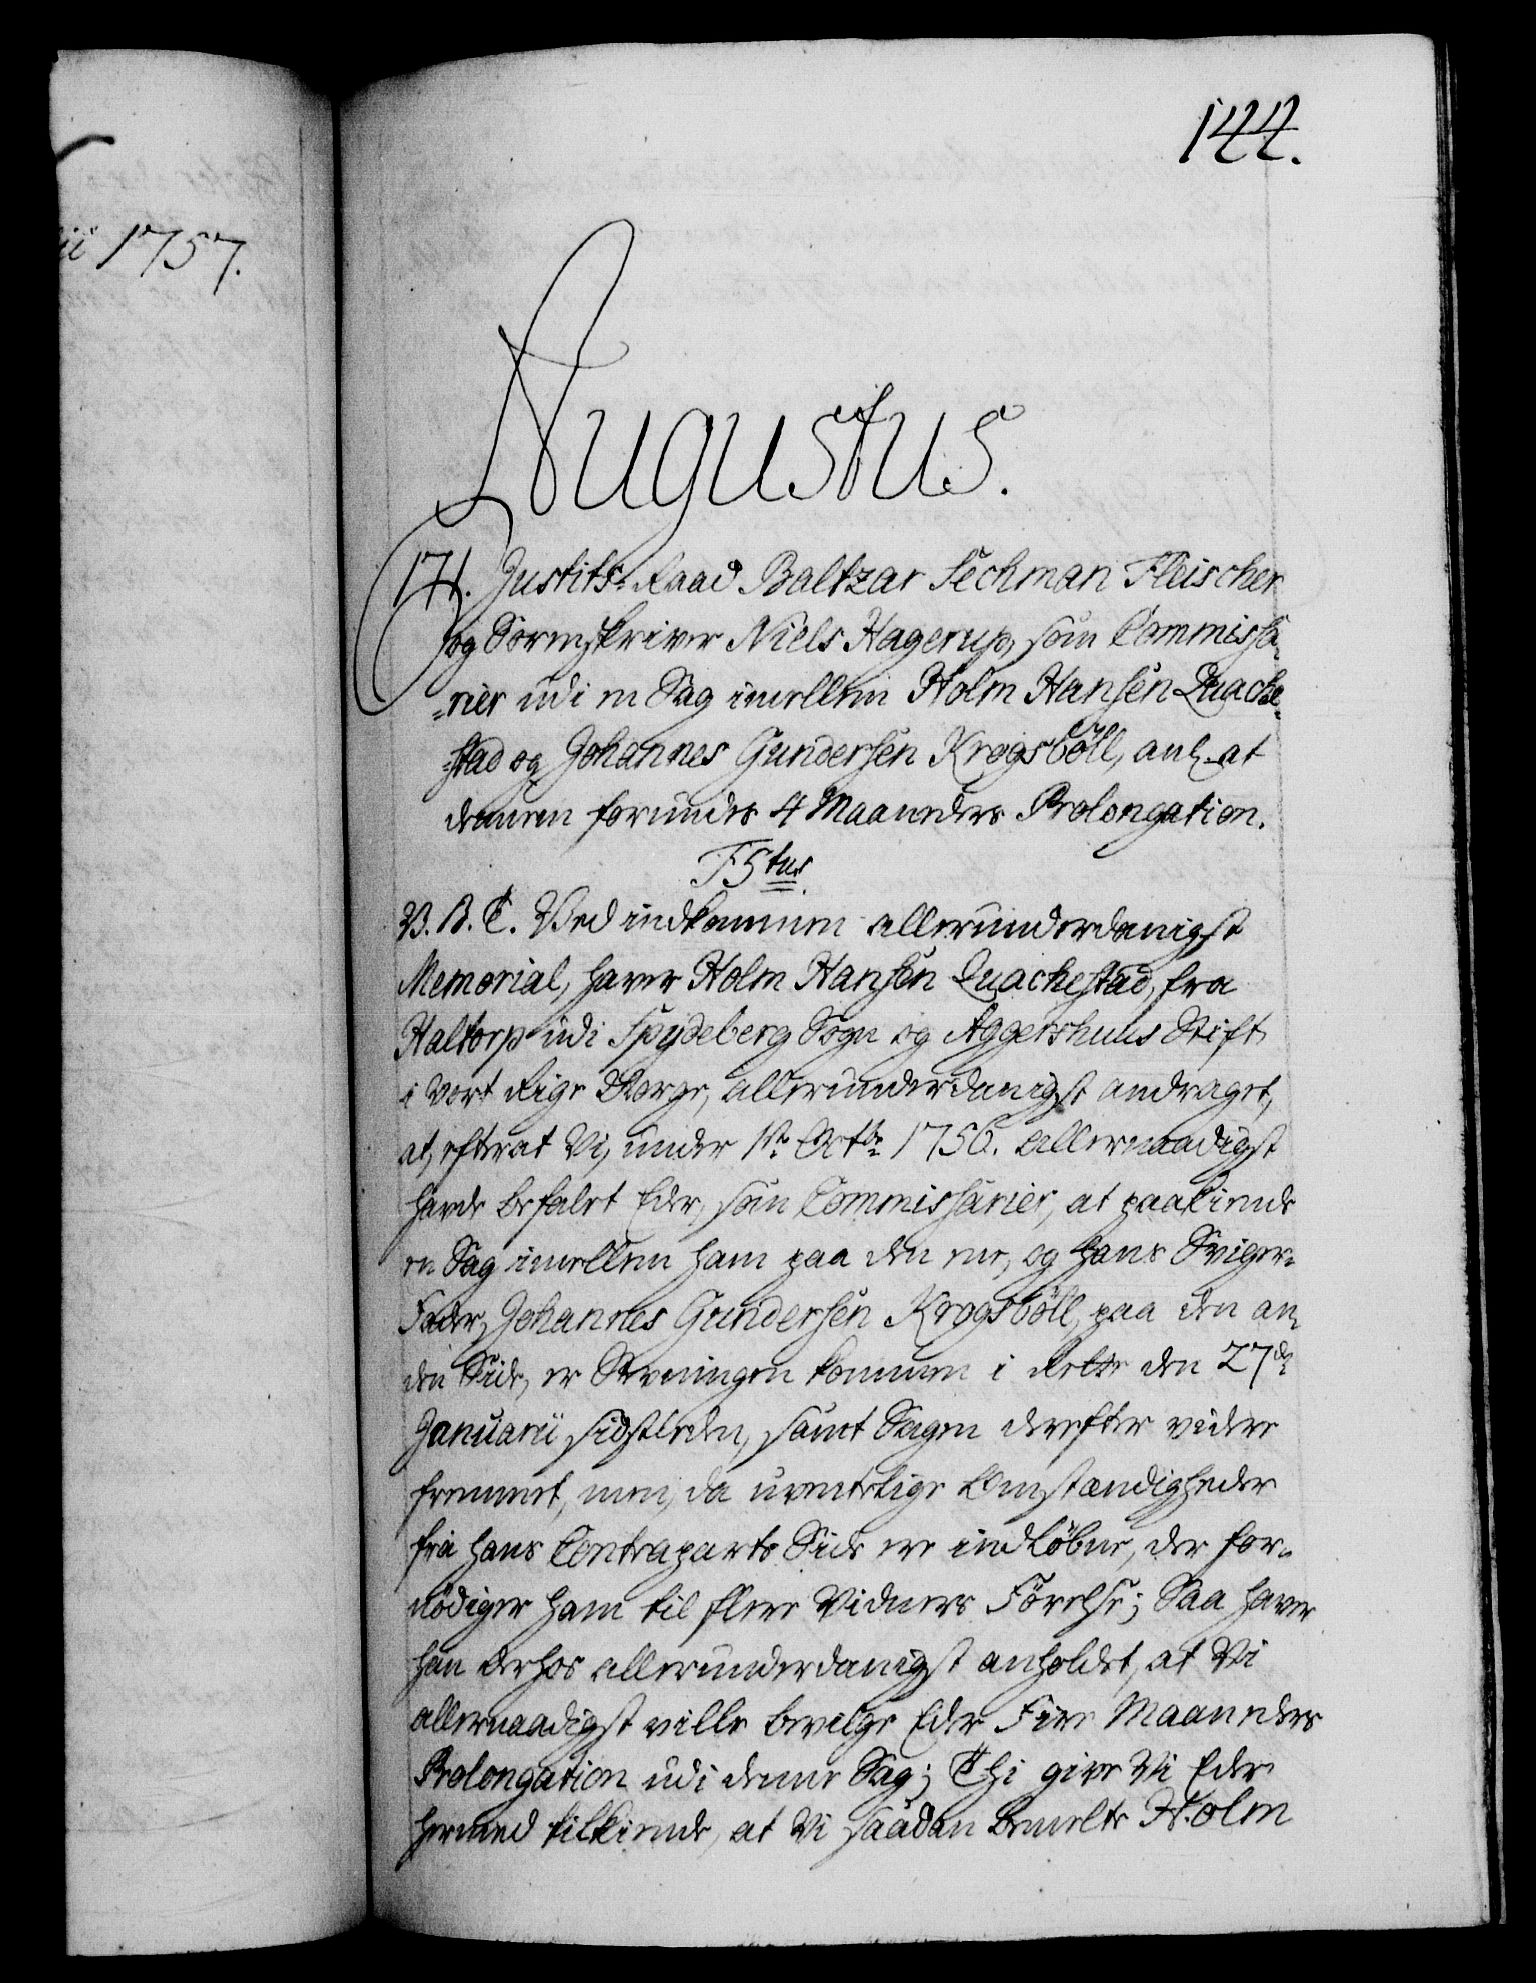 144.
ii 1757.
Augustus.
171. Justits-Raad Baltzar Sechman Fleischer
og Sorenskriver Niels Hagerup, som Commissa-
-rier udi en Sag imellem Holm Hansen Quache-
-stad og Johannes Gundersen Krogsböll, anl. at
dennem forundes 4 Maaneders Prolongation.
F5tus
V. B. T. Ved indkommen allerunderdanigst
Memorial, haver Holm Hansen Quachestad, fra
Haltorp udi Spydeberg Sogn og Aggershuus Stift
i vort Rige Norge, allerunderdanigst andraget,
at, efterat Vi, under 1ste Octbr 1756. allernaadigst
havde befalet Eder, som Commissarier, at paakiende
en Sag imellem ham paa den ene, og hans Sviger-
Fader, Johannes Gundersen Krogsböll, paa den an-
den Side, er Stevningen kommen i Rette den 27de
Januarii sidstleden, samt Sagen derefter videre
fremmet, men, da uventelige Omstændigheder
fra hans Contraparts Side ere indløbne, der for-
nödiger ham til flere Vidners Förelse; Saa haver
han derhos allerunderdanigst anholdet, at Vi
allernaadigst ville bevilge Eder Fire Maaneders
Prolongation udi denne Sag; Thi give Vi Eder
hermed tilkiende, at Vi saadan bemelte Holm